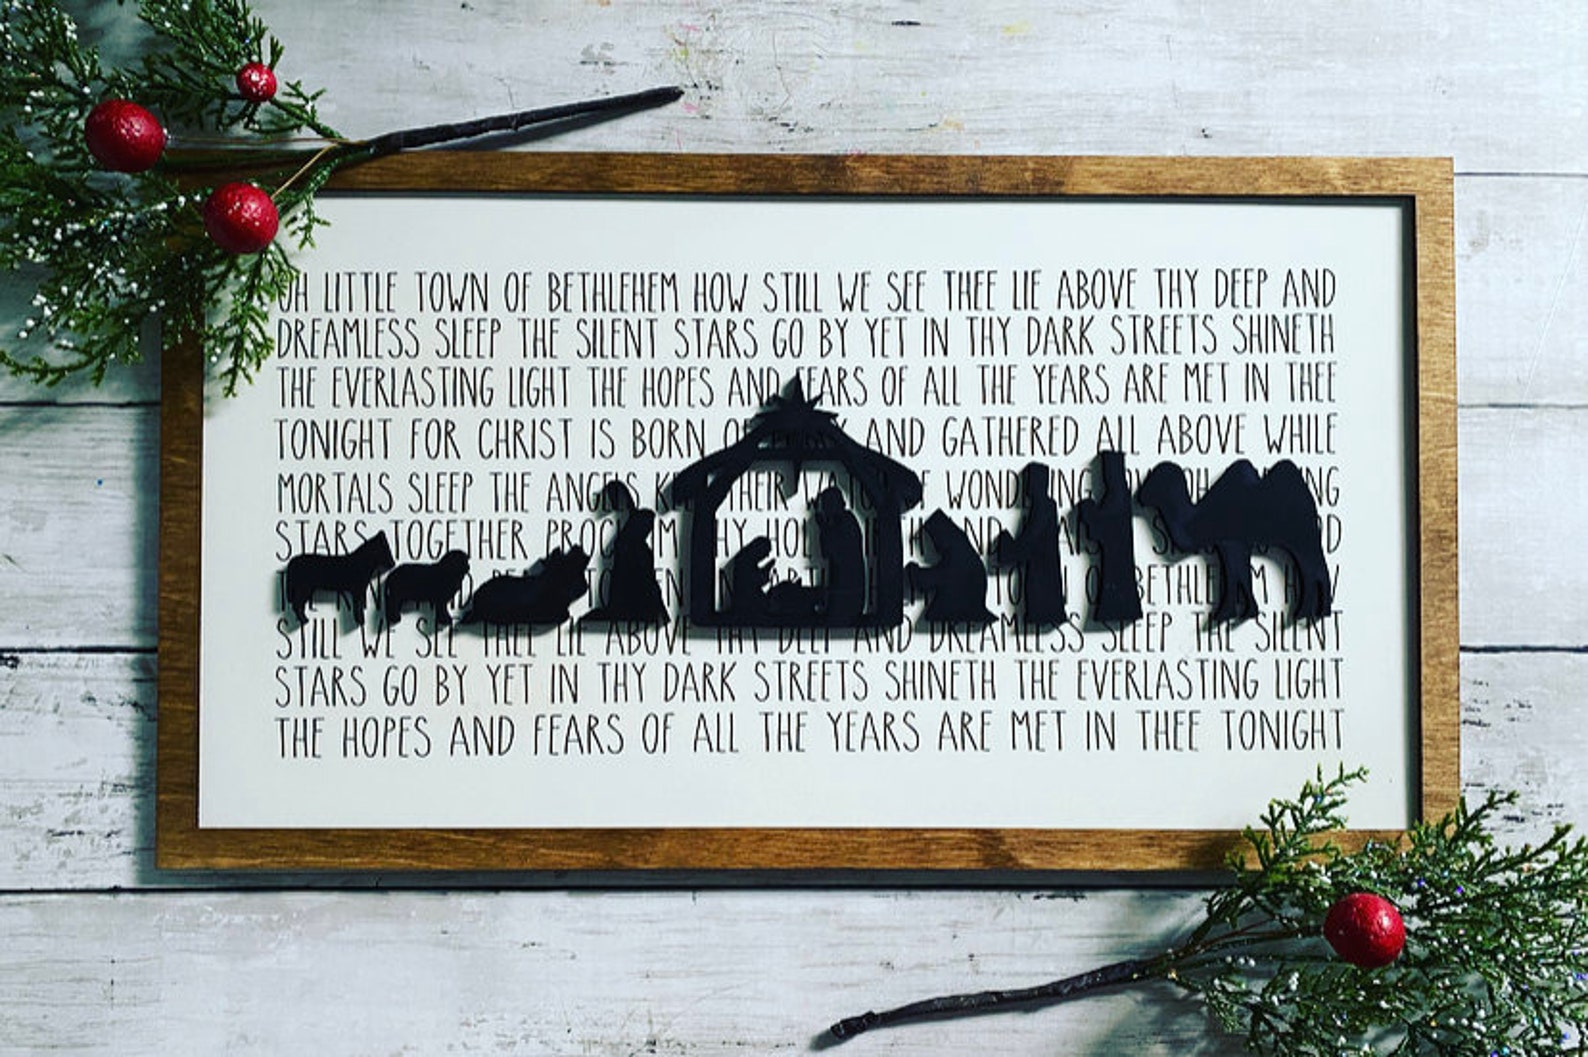 OH LITTLE TOWN OF BETHLEHEM HOW STILL WE SEE THEE LIE ABOVE THY DEEP AND
DREAMLESS SLEEP THE SILENT STARS GO BY YET IN THY DARK STREETS SHINETH
THE EVERLASTING LIGHT THE HOPES AND FEARS OF ALL THE YEARS ARE MET IN THEE
TONIGHT FOR CHRIST IS BORN OF AND GATHERED ALL ABOVE WHILE
MORTALS SLEEP THE ANGELS THEIR OF
STARS TOGETHER
BETHLEHEM
STILL WE SEE THEE LIE ABOVE THY DEEP AND DREAMLESS SLEEP THE SILENT
STARS GO BY YET IN THY DARK STREETS SHINETH THE EVERLASTING LIGHT
THE HOPES AND FEARS OF ALL THE YEARS ARE MET IN THEE TONIGHT